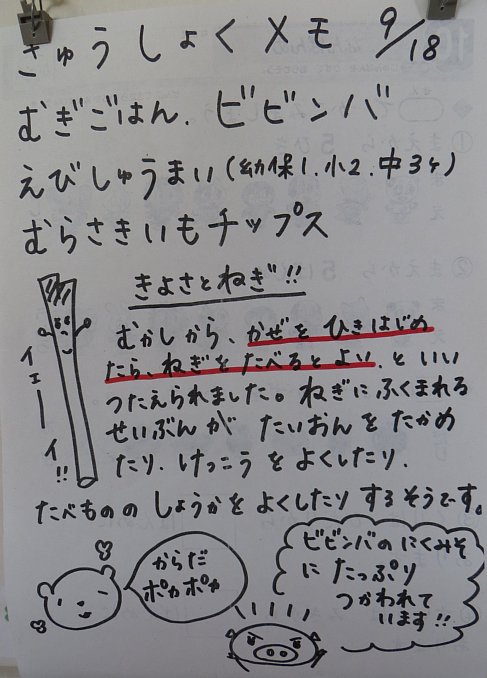 きゅうしょくメモ 9/18
むぎごはん. ビビンバ
えびしゅうまい(幼保1.小2.中3ケ)
むらさきいもチップス
きよさとねぎ!!
むかしから、かぜをひきはじめ
たら、ねぎをたべるとよい、といい
つたえられました。ねぎにふくまれる
せいぶんが たいおんをたかめ
たり. けっこうをよくしたり.
たべもののしょうかをよくしたりするそうです。
イェーイ!!
からだ
ポカポカ
ビビンバのにくみそ
にたっぷり
つかわれて
います!!